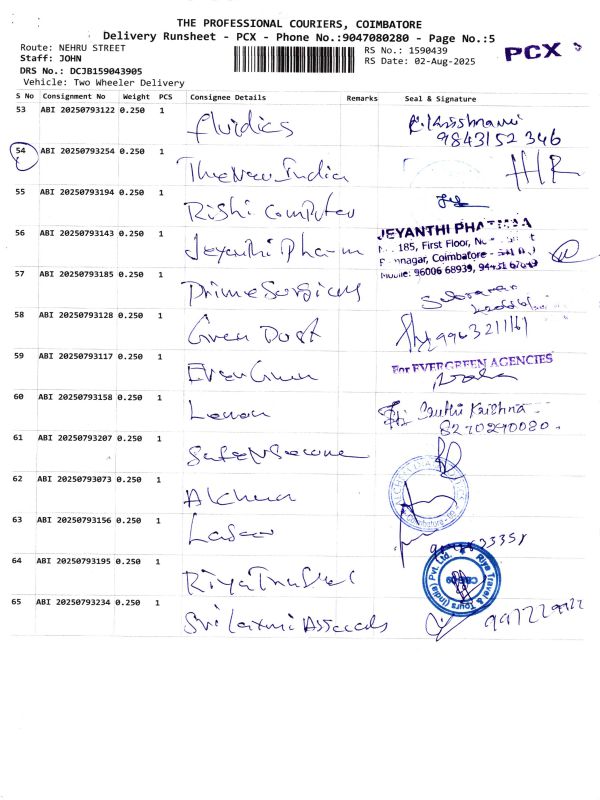 THE PROFESSIONAL COURIERS, COIMBATORE
Delivery Runsheet - PCX - Phone No.:9047080280 - Page No.:5
Route: NEHRU STREET
RS No.: 1590439
PCX
Staff: JOHN
RS Date: 02-Aug-2025
DRS No.: DCJB159043905
Vehicle: Two Wheeler Delivery
S No Consignment No Weight PCS Consignee Details Remarks Seal & Signature
53 ABI 20250793122 0.250 1 fluidics
9843152346
54 ABI 20250793254 0.250 1 The New India
55 ABI 20250793194 0.250 1 Rishi Computer
56 ABI 20250793143 0.250 1 Jeyanthi Pharm
JEYANTHI PHARMA
185, First Floor,
Coimbatore
Mobile: 96006 68939,
57 ABI 20250793185 0.250 1 Prime Surgicals
58 ABI 20250793128 0.250 1 Green Dost
9963211161
59 ABI 20250793117 0.250 1 Ever Green
For EVERGREEN AGENCIES
60 ABI 20250793158 0.250 1
Krishna
8270290080
61 ABI 20250793207 0.250 1
62 ABI 20250793073 0.250 1
Coimbatore
63 ABI 20250793156 0.250 1
64 ABI 20250793195 0.250 1 Riya Travel
Riya Travel & Tours (India) Pvt. Ltd.
65 ABI 20250793234 0.250 1 Sri Laxmi Associads